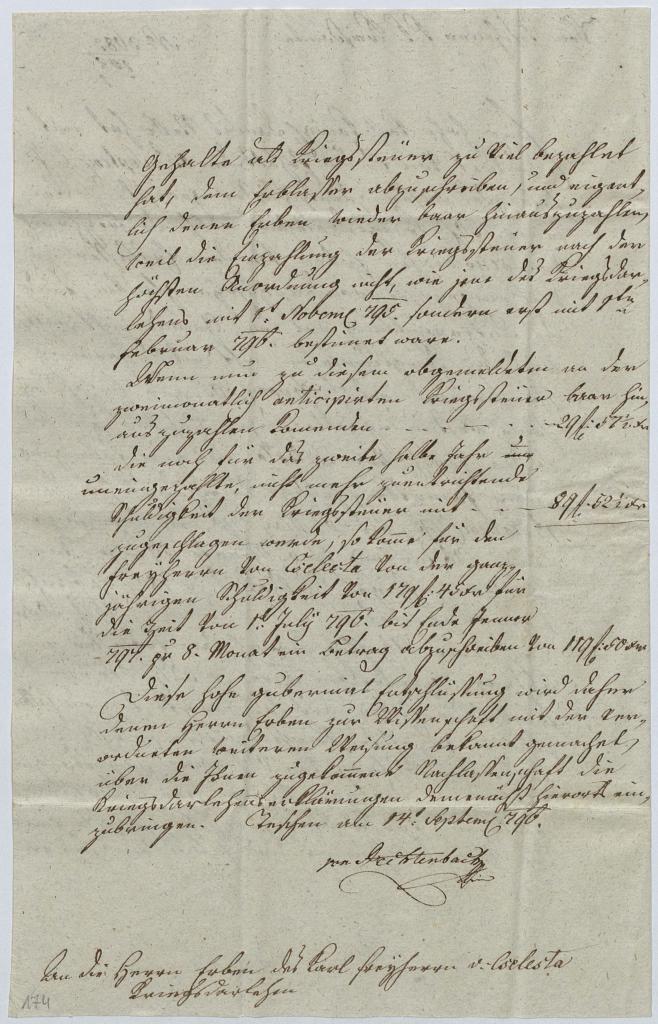 Gehalte als Kriegssteuer zu viel bezahlet
hat, dem Erblasser abzuschreiben, und eigent-
lich denen Erben wieder baar hinauszuzahlen,
weil die Einzahlung der Kriegssteuer nach der
höchsten Anordnung nicht, wie jene des Kriegsdar-
lehens mit 1t Novemb 795. sondern erst mit 1ten
Februar 796. bestimet ware.
Wenn nun zu diesem obgemeldeten an der
zweimonatlich anticipirten Kriegssteuer baar hin-
auszuzahlen komenden - - - - - 29 f: 57½ xr
die noch für das zweite halbe Jahr
uneingezahlte, nicht mehr zuentrichtende
Schuldigkeit der Kriegssteuer mit - - - 89 f: 52½ xr
zugeschlagen werde, so kome für den
Freyherrn von Cselesta von der ganz-
jährigen Schuldigkeit von 179 f: 45 xr für
die Zeit von 1t July 796. bis Ende Jenner
797. pr 8. Monat ein Betrag abzuschreiben von 119 f: 50 xr
Diese hohe gubernial Entschlüssung wird daher
denen Herrn Erben zur Wissenschaft mit der ver-
ordneten weiteren Weisung bekannt gemachet,
über die Ihnen zugekommene Nachlassenschaft die
Kriegsdarlehenserklärungen demnächst hierorts ein-
zubringen. Teschen am 14t Septemb 796.
An die Herrn Erben des Karl Freyherrn v: Cselesta
Kriegsdarlehen
174